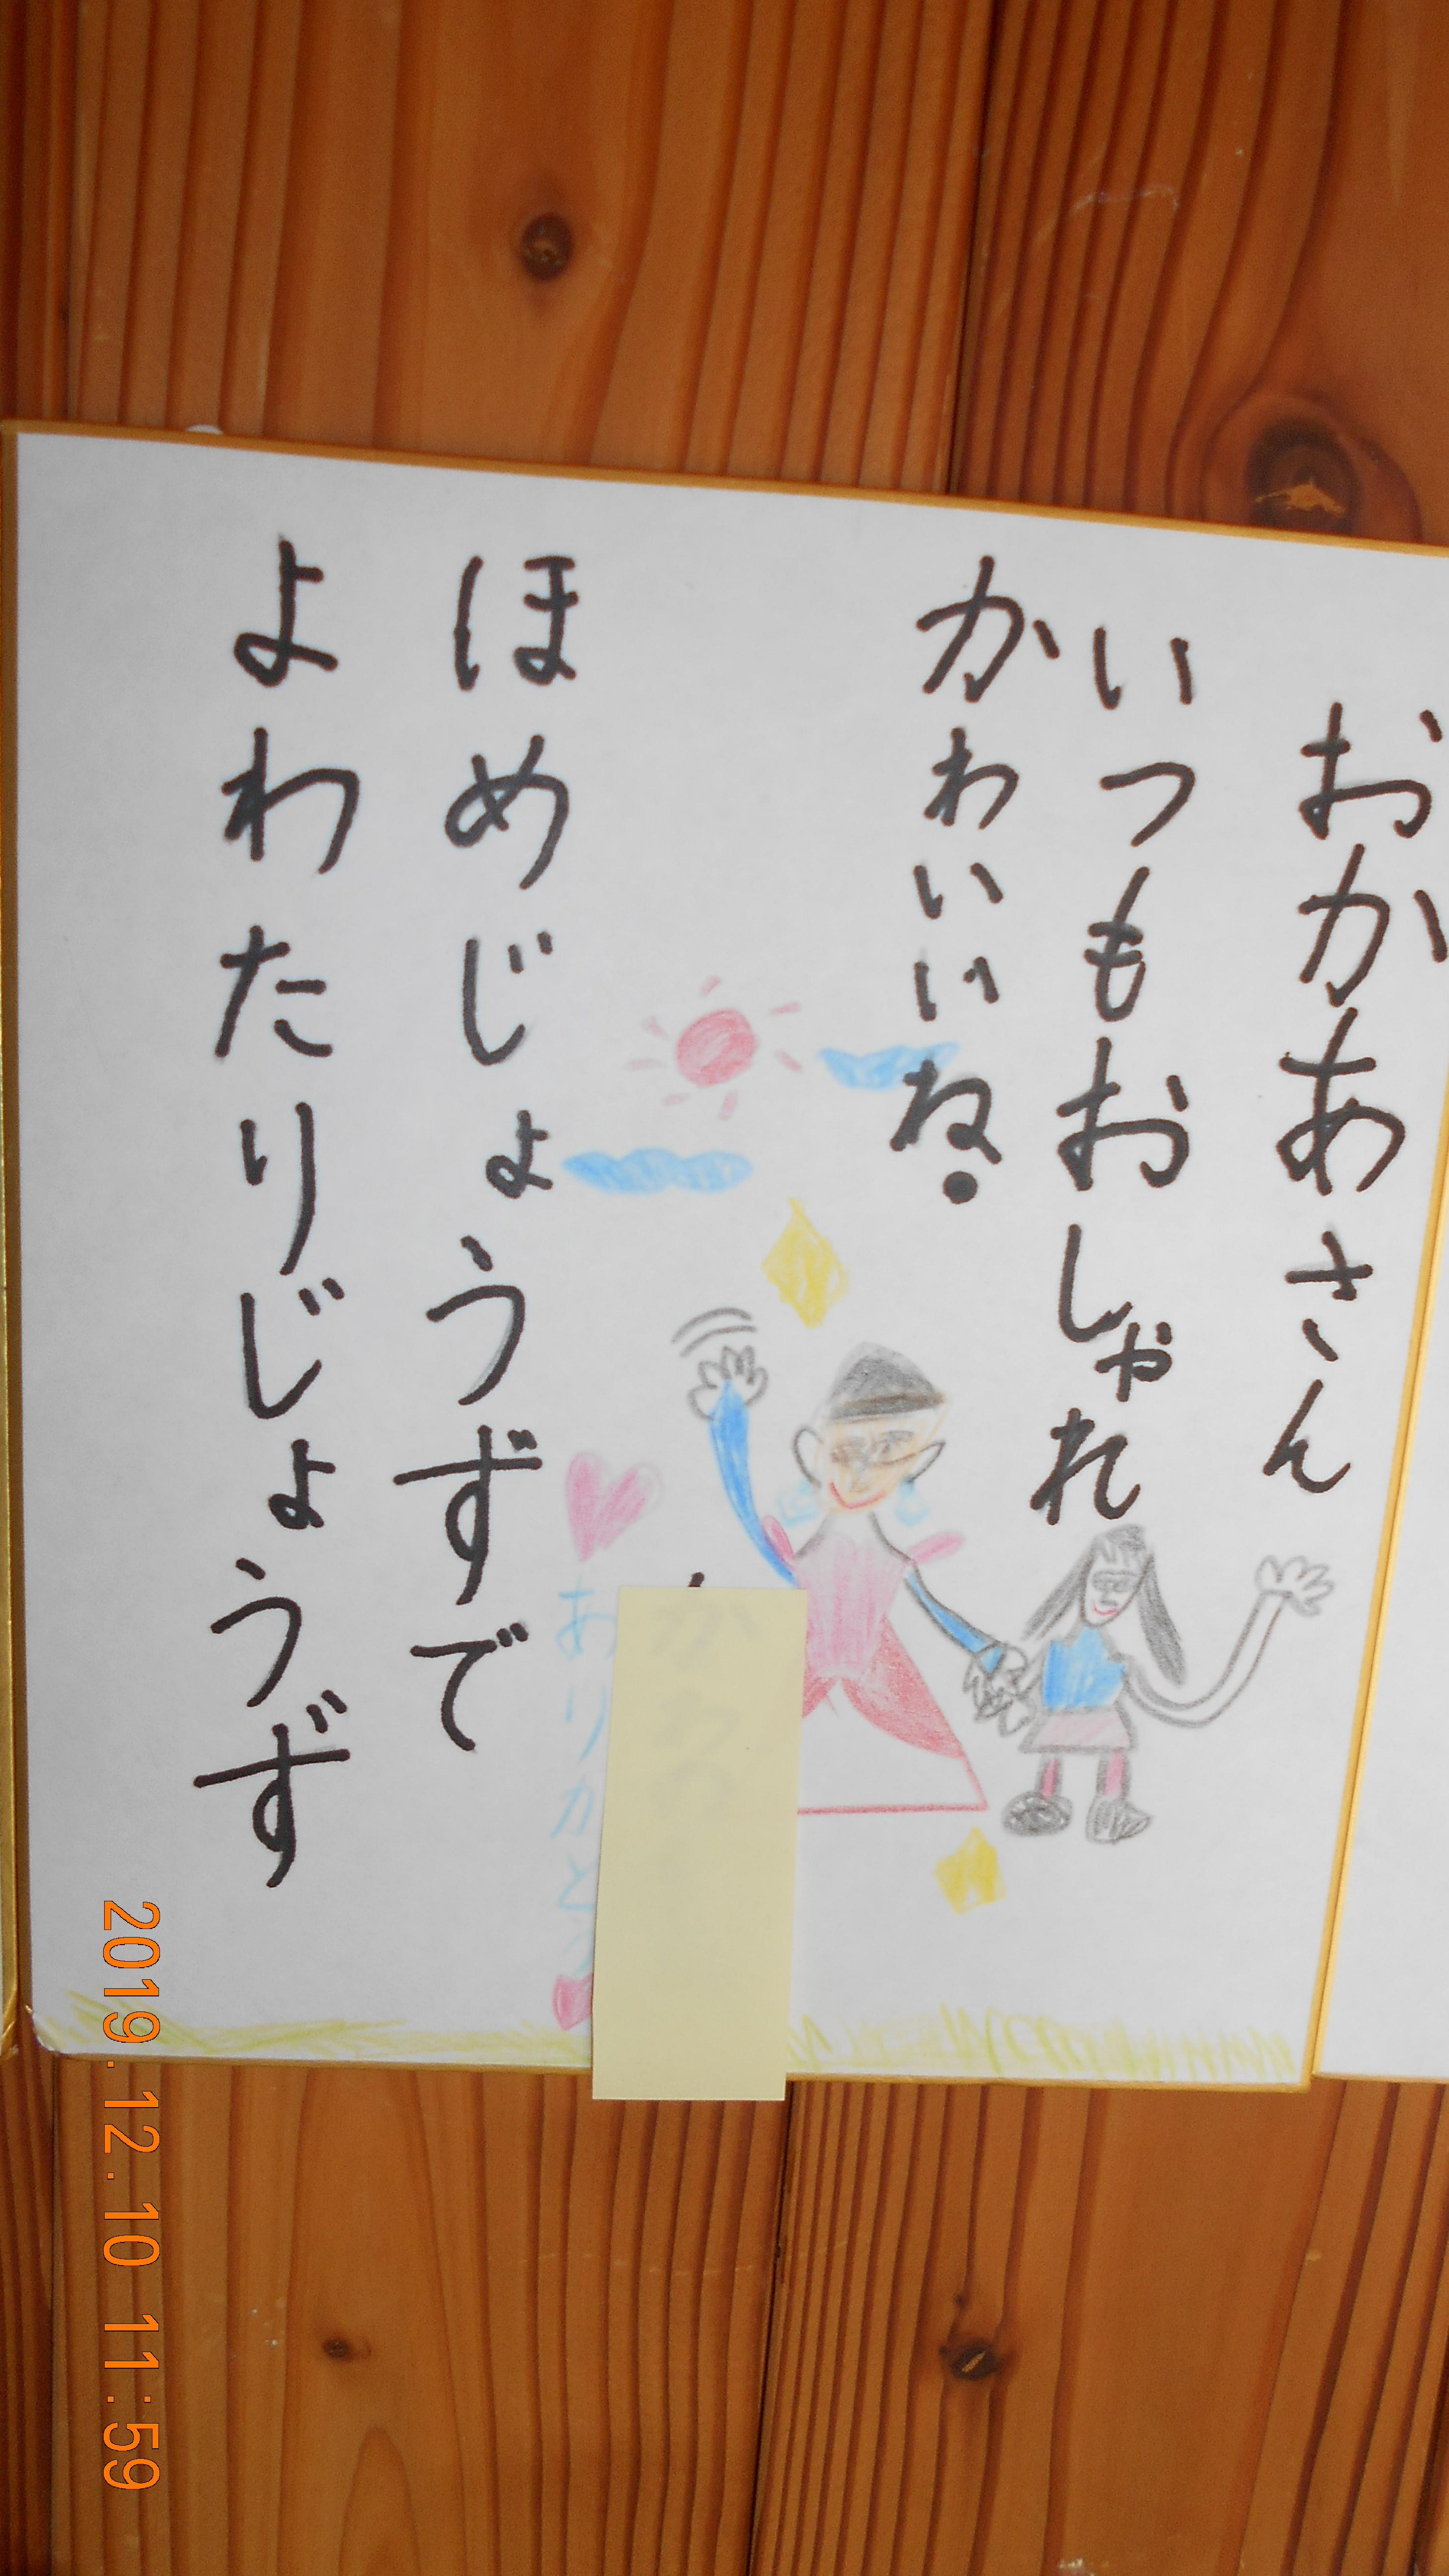 おかあさん
いつもおしゃれ
かわいいね。
ほめじょうずで
よわたりじょうず
2019.12.10 11:59